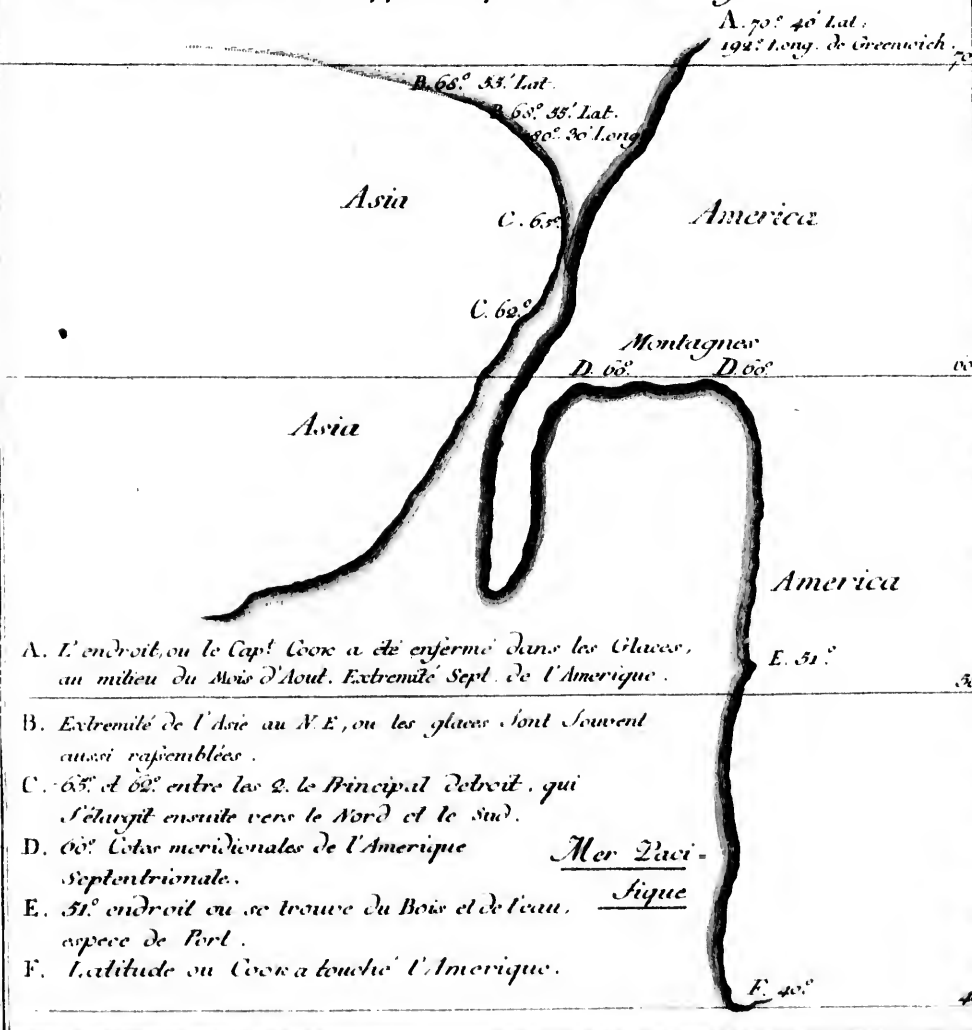 A. 70.° 40' Lat.
192.° Long. de Greenwich.
70
B. 68.° 55.' Lat.
B. 68.° 55' Lat.
80.° 30' Long
Asia
C. 65.°
America
C. 62.°
Montagnes
D. 60.° D. 60.°
60
Asia
America
A. L'endroit, ou le Cap.t Cook a été enfermé dans les Glaces,
au milieu du Mois d'Aout. Extremité Sept. de l'Amerique.
E. 51.°
50
B. Extremité de l'Asie au N.E, ou les glaces sont souvent
aussi rassemblées.
C. 65.° et 62.° entre les 2. le Principal detroit, qui
s'élargit ensuite vers le Nord et le Sud.
D. 60.° Cotes meridionales de l'Amerique
Septentrionale.
Mer Paci=
fique
E. 51.° endroit ou se trouve du Bois et de l'eau,
espece de Port.
F. Latitude ou Cook a touché l'Amerique.
F. 40.°